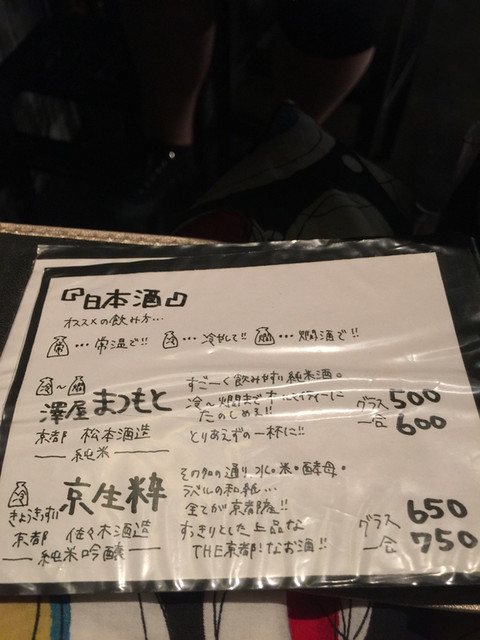 『日本酒』
オススメの飲み方…
常…常温で!! 冷…冷やして!! 燗…燗酒で!!
冷〜燗
澤屋まつもと
京都 松本酒造
純米
すごーく飲みやすい純米酒。
冷〜燗まで
たのしめる!!
とりあえずの一杯に!!
グラス 500
一合 600
冷
京生粋
きょうきっすい
京都 佐々木酒造
純米吟醸
その名の通り水・米・酵母・
ラベルの和紙…
全てが京都産!!
すっきりとした上品な
THE京都!なお酒!!
グラス 650
一合 750